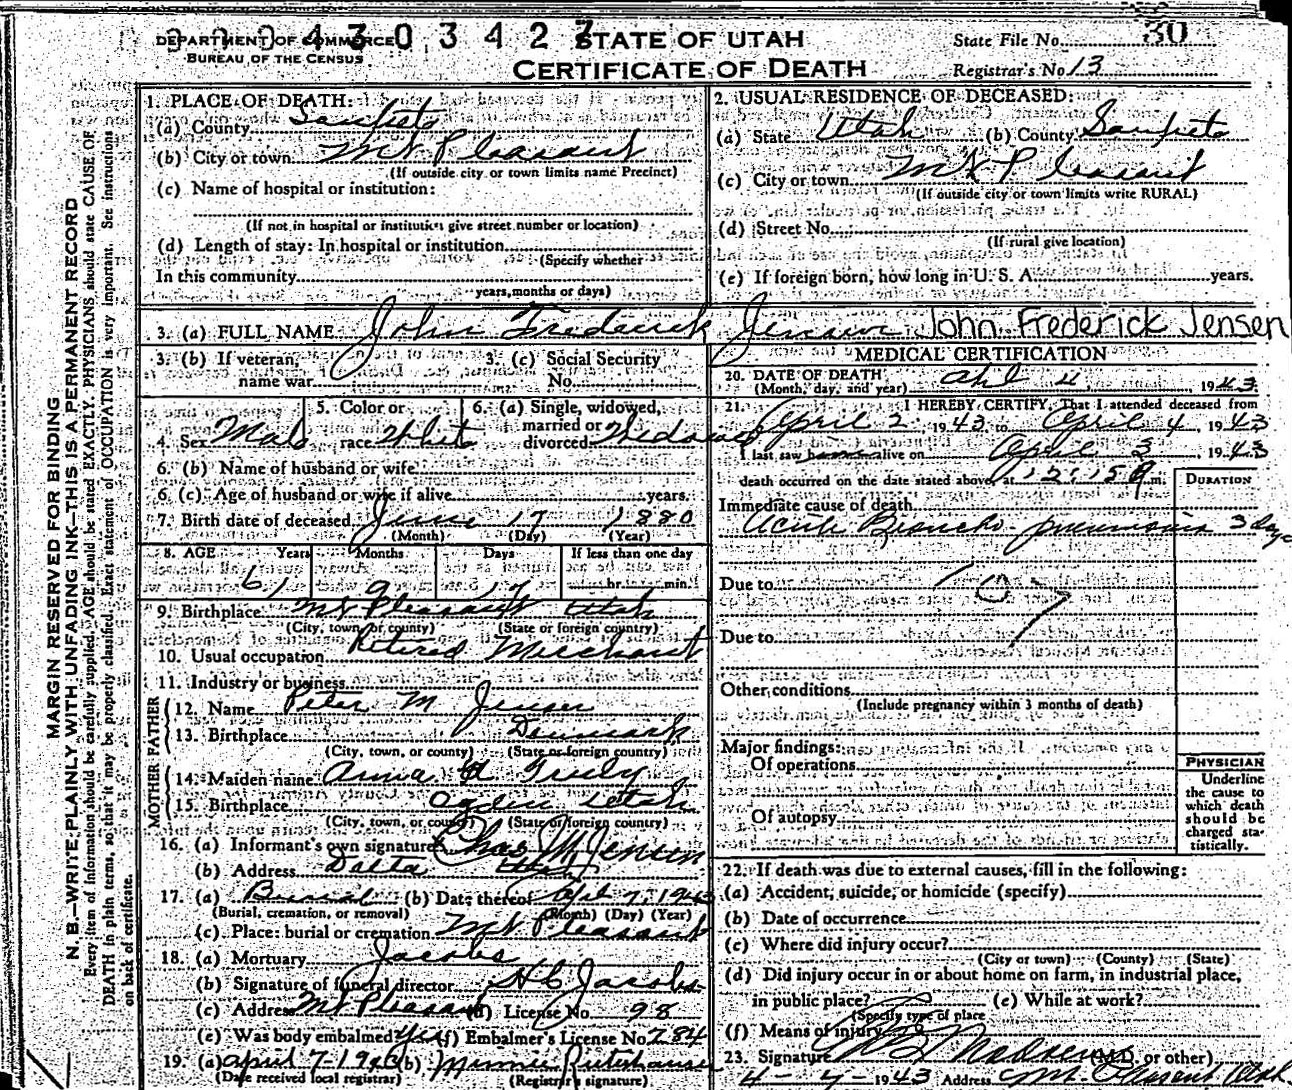 3 0 0 4 3 0 3 4 2 7
DEPARTMENT OF COMMERCE
BUREAU OF THE CENSUS
STATE OF UTAH
CERTIFICATE OF DEATH
State File No. 30
Registrar's No. 13
MARGIN RESERVED FOR BINDING
N. B.—WRITE PLAINLY WITH UNFADING INK—THIS IS A PERMANENT RECORD
Every item of information should be carefully supplied. AGE should be stated EXACTLY. PHYSICIANS should state CAUSE OF
DEATH in plain terms, so that it may be properly classified. Exact statement of OCCUPATION is very important. See instructions
on back of certificate.
1. PLACE OF DEATH:
(a) County Sanpete
(b) City or town Mt Pleasant
(If outside city or town limits name Precinct)
(c) Name of hospital or institution:
(If not in hospital or institution give street number or location)
(d) Length of stay: In hospital or institution
(Specify whether
In this community
years, months or days)
2. USUAL RESIDENCE OF DECEASED:
(a) State Utah (b) County Sanpete
(c) City or town Mt Pleasant
(If outside city or town limits write RURAL)
(d) Street No.
(If rural give location)
(e) If foreign born, how long in U. S. A. years.
3. (a) FULL NAME John Frederick Jensen John Frederick Jensen
3. (b) If veteran, name war
3. (c) Social Security No.
4. Sex Male
5. Color or race White
6. (a) Single, widowed, married or divorced Widowed
6. (b) Name of husband or wife
6. (c) Age of husband or wife if alive years.
7. Birth date of deceased June 17 1880
(Month) (Day) (Year)
8. AGE Years Months Days If less than one day
61 9 17 hr. min.
9. Birthplace Mt Pleasant Utah
(City, town, or county) (State or foreign country)
10. Usual occupation Retired Merchant
11. Industry or business
FATHER
12. Name Peter M Jensen
13. Birthplace Denmark
(City, town, or county) (State or foreign country)
MOTHER
14. Maiden name Anna
15. Birthplace Ogden Utah
(City, town, or county) (State or foreign country)
16. (a) Informant's own signature Chas M Jensen
(b) Address Delta Utah
17. (a) Burial (b) Date thereof Apl 7, 1943
(Burial, cremation, or removal) (Month) (Day) (Year)
(c) Place: burial or cremation Mt Pleasant
18. (a) Mortuary Jacobs
(b) Signature of funeral director H C Jacobs
(c) Address Mt Pleasant (d) License No. 98
(e) Was body embalmed Yes (f) Embalmer's License No. 284
19. (a) April 7-1943 (b) Minnie
(Date received local registrar) (Registrar's signature)
MEDICAL CERTIFICATION
20. DATE OF DEATH Apl 4, 1943
(Month, day, and year)
21. I HEREBY CERTIFY, That I attended deceased from
April 2 1943 to April 4, 1943
I last saw him alive on April 3, 1943
death occurred on the date stated above at 12:15 m.
DURATION
Immediate cause of death
Acute Broncho-pneumonia 3 days
Due to
107
Due to
Other conditions
(Include pregnancy within 3 months of death)
Major findings:
Of operations
Of autopsy
PHYSICIAN
Underline
the cause to
which death
should be
charged sta-
tistically.
22. If death was due to external causes, fill in the following:
(a) Accident, suicide, or homicide (specify)
(b) Date of occurrence
(c) Where did injury occur?
(City or town) (County) (State)
(d) Did injury occur in or about home on farm, in industrial place,
in public place? (e) While at work?
(Specify type of place
(f) Means of injury
23. Signature Madsen (M.D. or other)
4-7-1943 Address Mt. Pleasant Utah